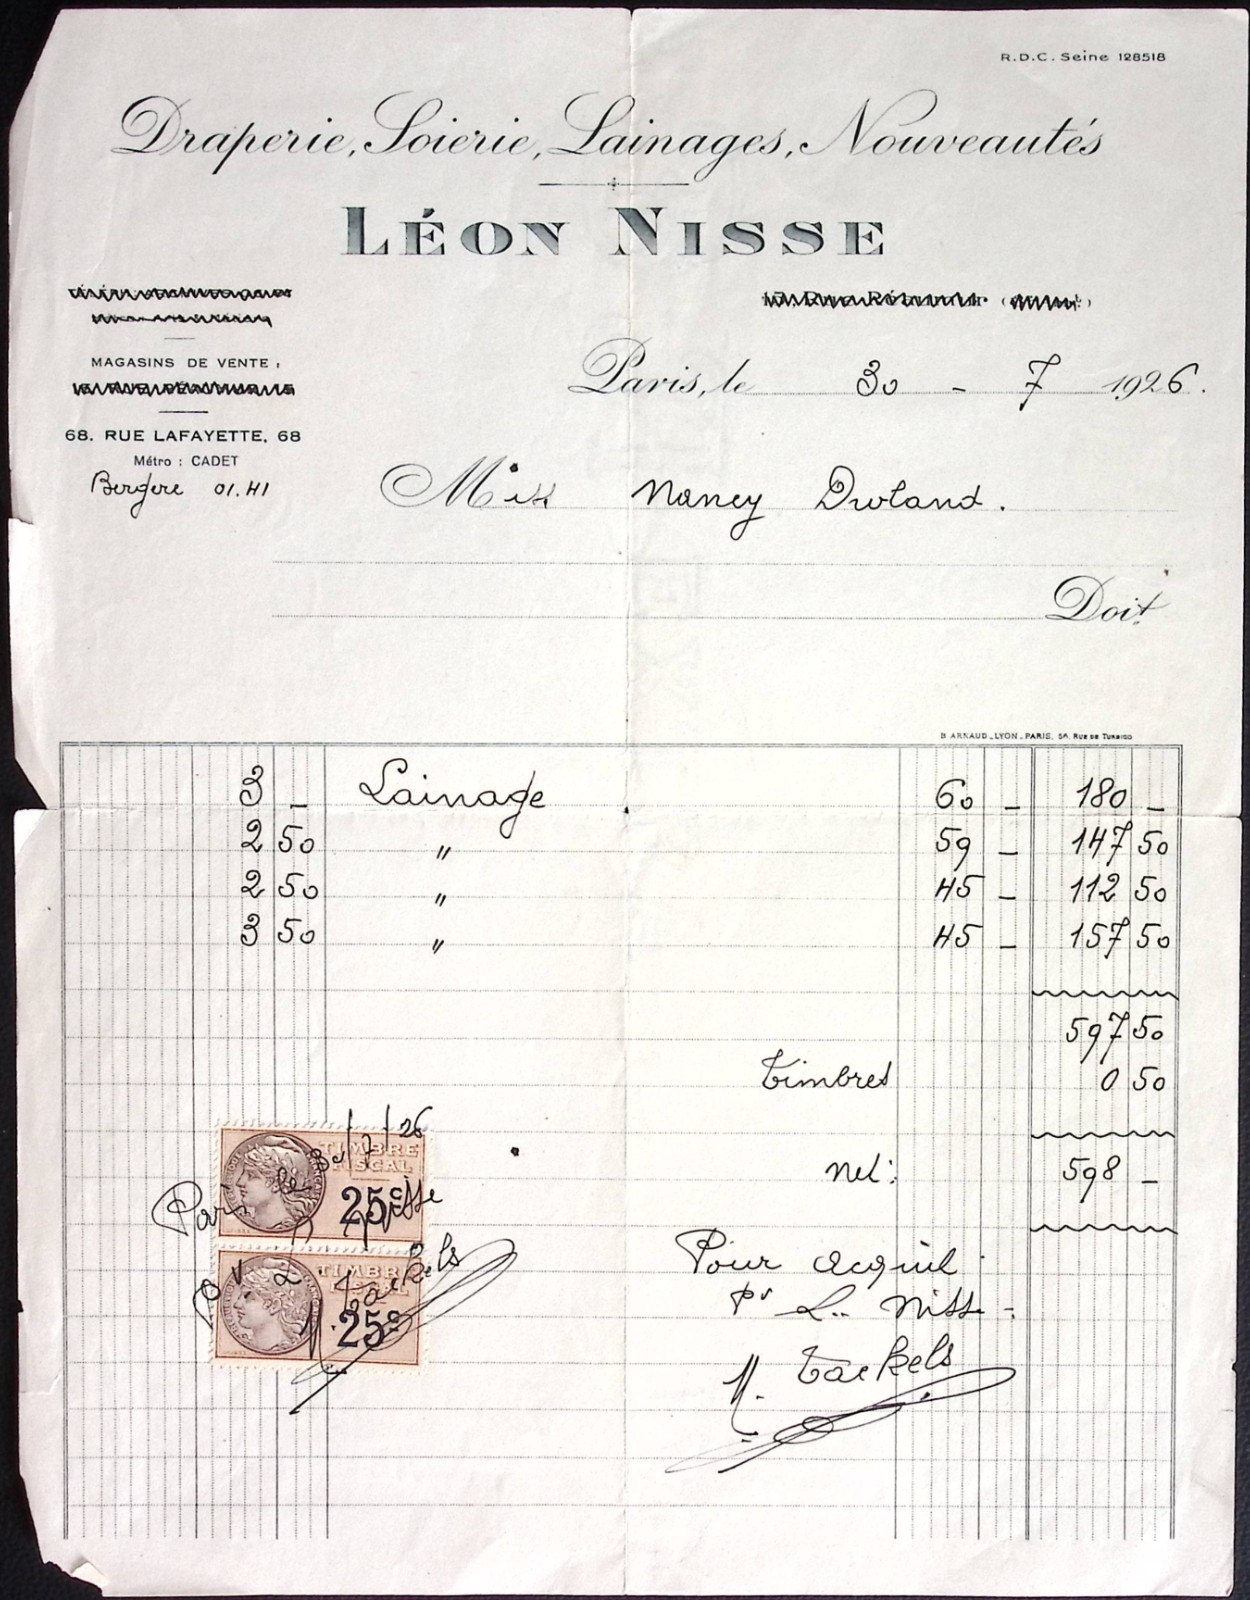 R.D.C. Seine 128518
Draperie, Soierie, Lainages, Nouveautés
LÉON NISSE
MAGASINS DE VENTE :
Paris, le 30 - 7 1926.
68, RUE LAFAYETTE, 68
Métro : CADET
Bergere 01.41
Miss Nancy
Doit
B. ARNAUD_LYON_PARIS, 56, RUE DE TURBIGO
3 _ Lainage 60 _ 180 _
2 50 " 59 _ 147 50
2 50 " 45 _ 112 50
3 50 " 45 _ 157 50
597 50
timbres 0 50
net: 598 _
Paris le 30/7/26
TIMBRE
FISCAL
25c
Nisse
TIMBRE
FISCAL
25c
Tackels
Pour acquit
Pr L. Nisse
Tackels